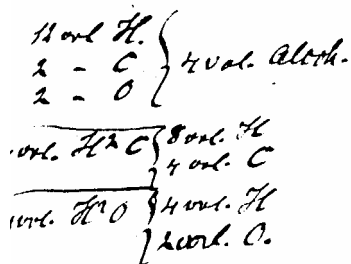 12 vol. H.
2 - C } 4 vol. Alcoh.
2 - O
vol. H²C { 8 vol. H
4 vol. C
vol. H²O { 4 vol. H
2 vol. O.